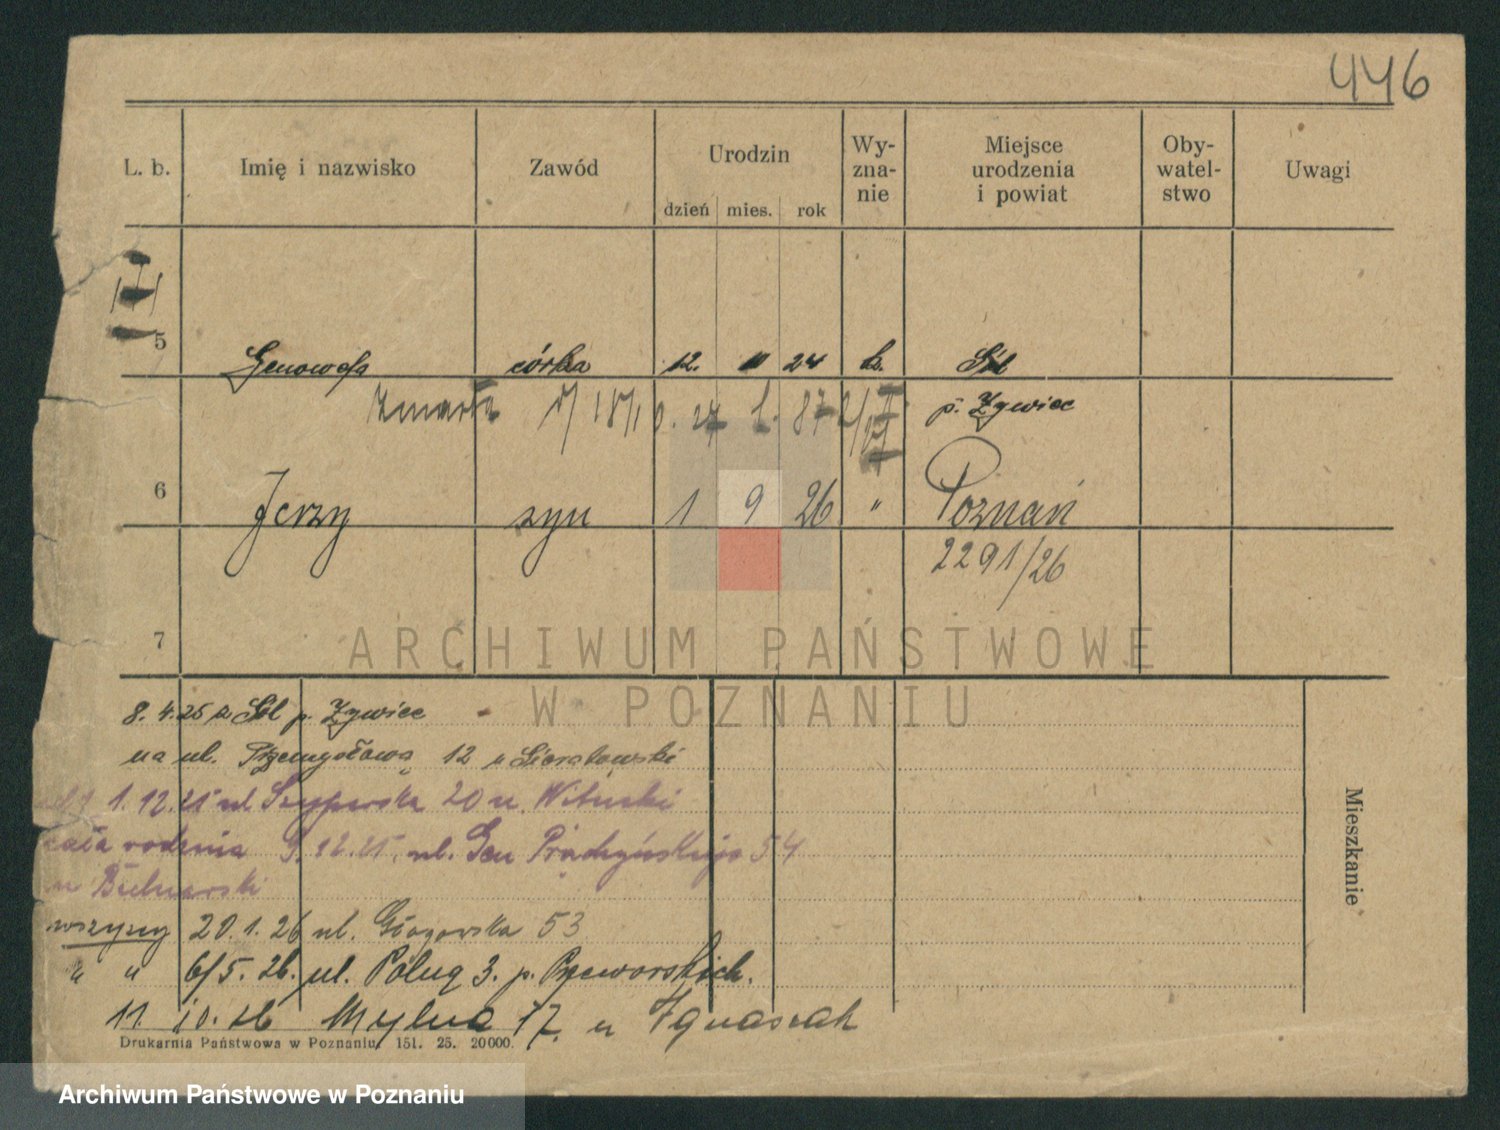 446
L. b. Imię i nazwisko Zawód Urodzin Wy-zna-nie Miejsce urodzenia i powiat Oby-watel-stwo Uwagi
dzień mies. rok
5 Genowefa córka 12. 11 24 k. Sól
p. Żywiec
Zmarła
6 Jerzy syn 1 9 26 " Poznań
2291/26
7
ARCHIWUM PAŃSTWOWE
W POZNANIU
8. 4. 25 z Sól p. Żywiec
na ul. Przemysłową 12 u Sierakowski
1. 12. 25 ul Szyperska 20 u. Wituski
cała rodzina 9. 12. 25. ul. Gen Prądzyńskiego 54
u Bielnarski
wszyscy 20. 1. 26 ul. Głogowska 53
" " 6/5. 26. ul. Polna 3. p. Przeworskich.
11. 10. 26 Mylna 17. u Ignaszak
Mieszkanie
Drukarnia Państwowa w Poznaniu. 151. 25. 20000.
Archiwum Państwowe w Poznaniu